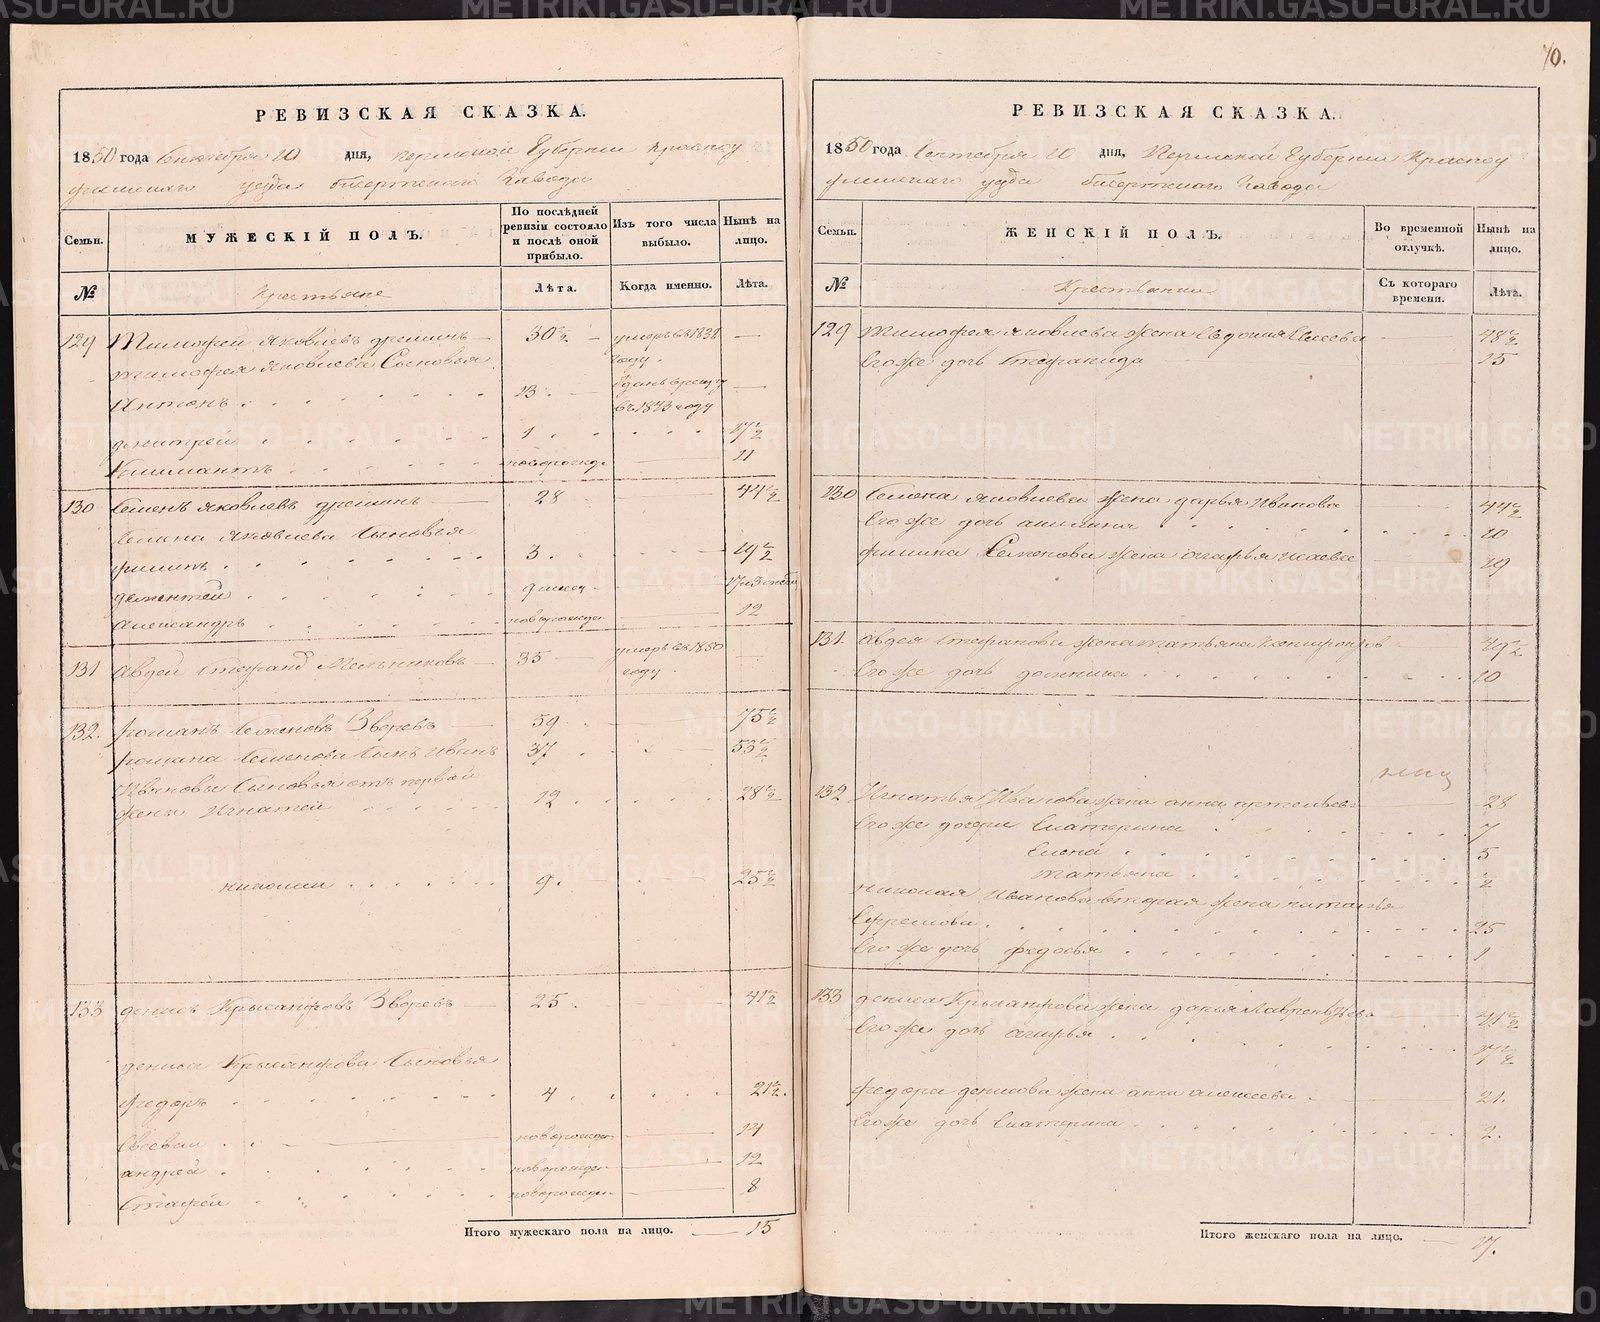 70.
РЕВИЗСКАЯ СКАЗКА.
1850 года Сентября 20 дня, Пермской Губернии Красноу
фимскаго уезда бисертскаго Завода
Семьи.
МУЖЕСКІЙ ПОЛЪ.
По послѣдней ревизіи состояло и послѣ оной прибыло.
Изъ того числа выбыло.
Нынѣ на лицо.
№
Крестьяне
Лѣта.
Когда именно.
Лѣта.
129 Тимофей Яковлевъ 30½ умеръ въ 1838
году.
Тимофея Яковлева Сыновья
Антонъ 13. въ 1843 году
Дмитрей 1 17½
Климантъ новорожд. 11
130 Семенъ Яковлевъ 28 44½
Семена Яковлева Сыновья
Филипъ 3. 19½
Дементей
Александръ новорожден 12
131 Авдей Мельниковъ 35 умеръ въ 1850
году
132. Романъ Семеновъ Зверевъ 59 75½
Романа Семенова Сынъ Иванъ 37 53½
Ивановы Сыновья отъ первой
жены Игнатей 12 28½
Николай 9. 25½
133 Денисъ Крысанфовъ Зверевъ 25. 41½
Дениса Крысанфова Сыновья
Федоръ 4 21½.
новорожден 14
Андрей новорожден 12
новорожден 8
Итого мужескаго пола на лицо. 15
РЕВИЗСКАЯ СКАЗКА.
1850 года Сентября 20 дня, Пермской Губернии Красноу
фимскаго уезда бисертскаго Завода
Семьи.
ЖЕНСКІЙ ПОЛЪ.
Во временной отлучкѣ.
Нынѣ на лицо.
№
Крестьянки
Съ котораго времени.
Лѣта.
129 Тимофея Яковлева жена 48½
Его же дочь 15
130 Семена Яковлева жена Дарья Иванова 44½
Его же дочь 10
Филипа Семенова жена 19
131. Авдея Стефанова жена Татьяна 49½
Его же дочь 10
132 Игнатья Иванова жена Анна 28
Его же дочери Екатерина 7
Елена 5
Татьяна ½
Николая Иванова вторая жена Наталья
Ефремова 25
Его же дочь Федосья 1
133 Дениса Крысанфова жена Дарья 41½
Его же дочь 17½
Федора Денисова жена Анна Алексеева 21.
Его же дочь Екатерина 2.
Итого женскаго пола на лицо. 17.
METRIKI.GASO-URAL.RU